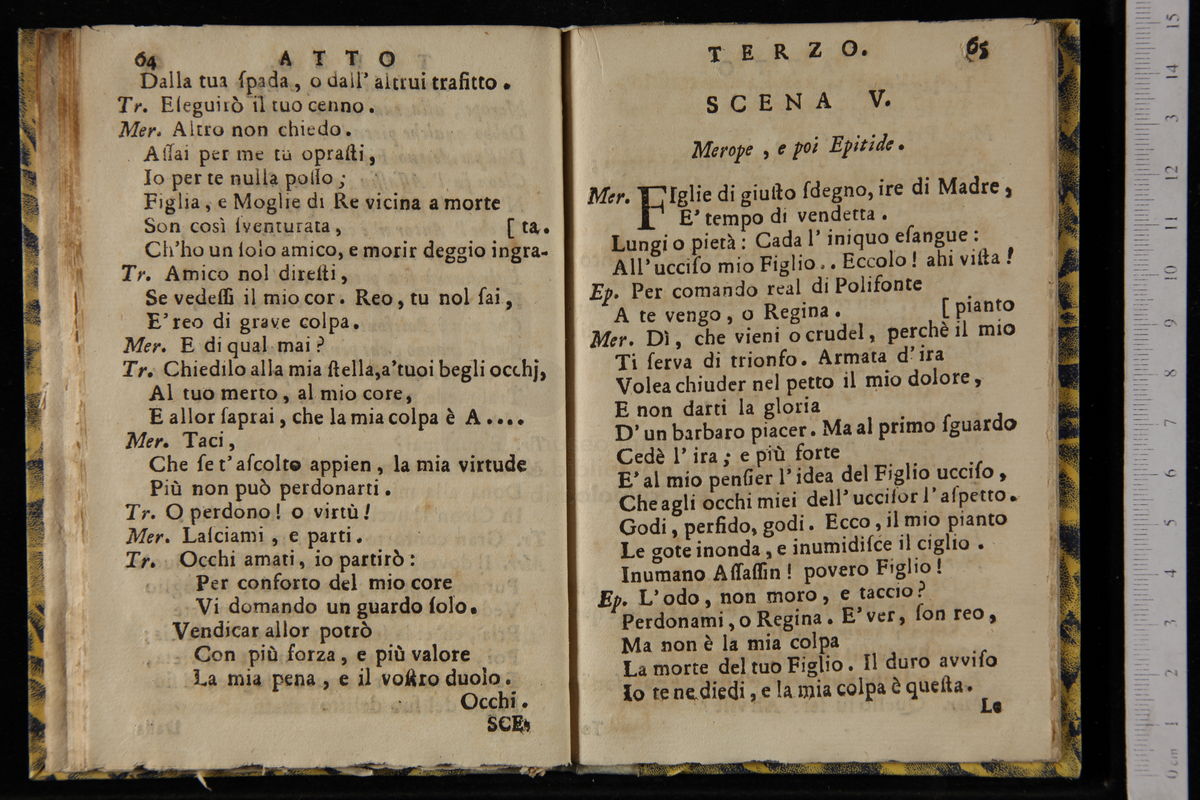 64 ATTO
Dalla tua ſpada, o dall' altrui trafitto.
Tr. Eſeguirò il tuo cenno.
Mer. Altro non chiedo.
Aſſai per me tu opraſti,
Io per te nulla poſſo;
Figlia, e Moglie di Re vicina a morte
Son così ſventurata, [ta.
Ch'ho un ſolo amico, e morir deggio ingra-
Tr. Amico nol direſti,
Se vedeſſi il mio cor. Reo, tu nol ſai,
E' reo di grave colpa.
Mer. E di qual mai?
Tr. Chiedilo alla mia ſtella, a' tuoi begli occhj,
Al tuo merto, al mio core,
E allor ſaprai, che la mia colpa è A....
Mer. Taci,
Che ſe t' aſcolto appien, la mia virtude
Più non può perdonarti.
Tr. O perdono! o virtù!
Mer. Laſciami, e parti.
Tr. Occhi amati, io partirò:
Per conforto del mio core
Vi domando un guardo ſolo.
Vendicar allor potrò
Con più forza, e più valore
La mia pena, e il voſtro duolo.
Occhi.
SCE-
TERZO. 65
SCENA V.
Merope, e poi Epitide.
Mer. FIglie di giuſto ſdegno, ire di Madre,
E' tempo di vendetta.
Lungi o pietà: Cada l' iniquo eſangue:
All' ucciſo mio Figlio.. Eccolo! ahi viſta!
Ep. Per comando real di Polifonte
A te vengo, o Regina. [pianto
Mer. Dì, che vieni o crudel, perchè il mio
Ti ſerva di trionfo. Armata d' ira
Volea chiuder nel petto il mio dolore,
E non darti la gloria
D' un barbaro piacer. Ma al primo ſguardo
Cedè l' ira; e più forte
E' al mio penſier l' idea del Figlio ucciſo,
Che agli occhi miei dell' ucciſor l' aſpetto.
Godi, perfido, godi. Ecco, il mio pianto
Le gote inonda, e inumidiſce il ciglio.
Inumano Aſſaſſin! povero Figlio!
Ep. L' odo, non moro, e taccio?
Perdonami, o Regina. E' ver, ſon reo,
Ma non è la mia colpa
La morte del tuo Figlio. Il duro avviſo
Io te ne diedi, e la mia colpa è queſta.
Le